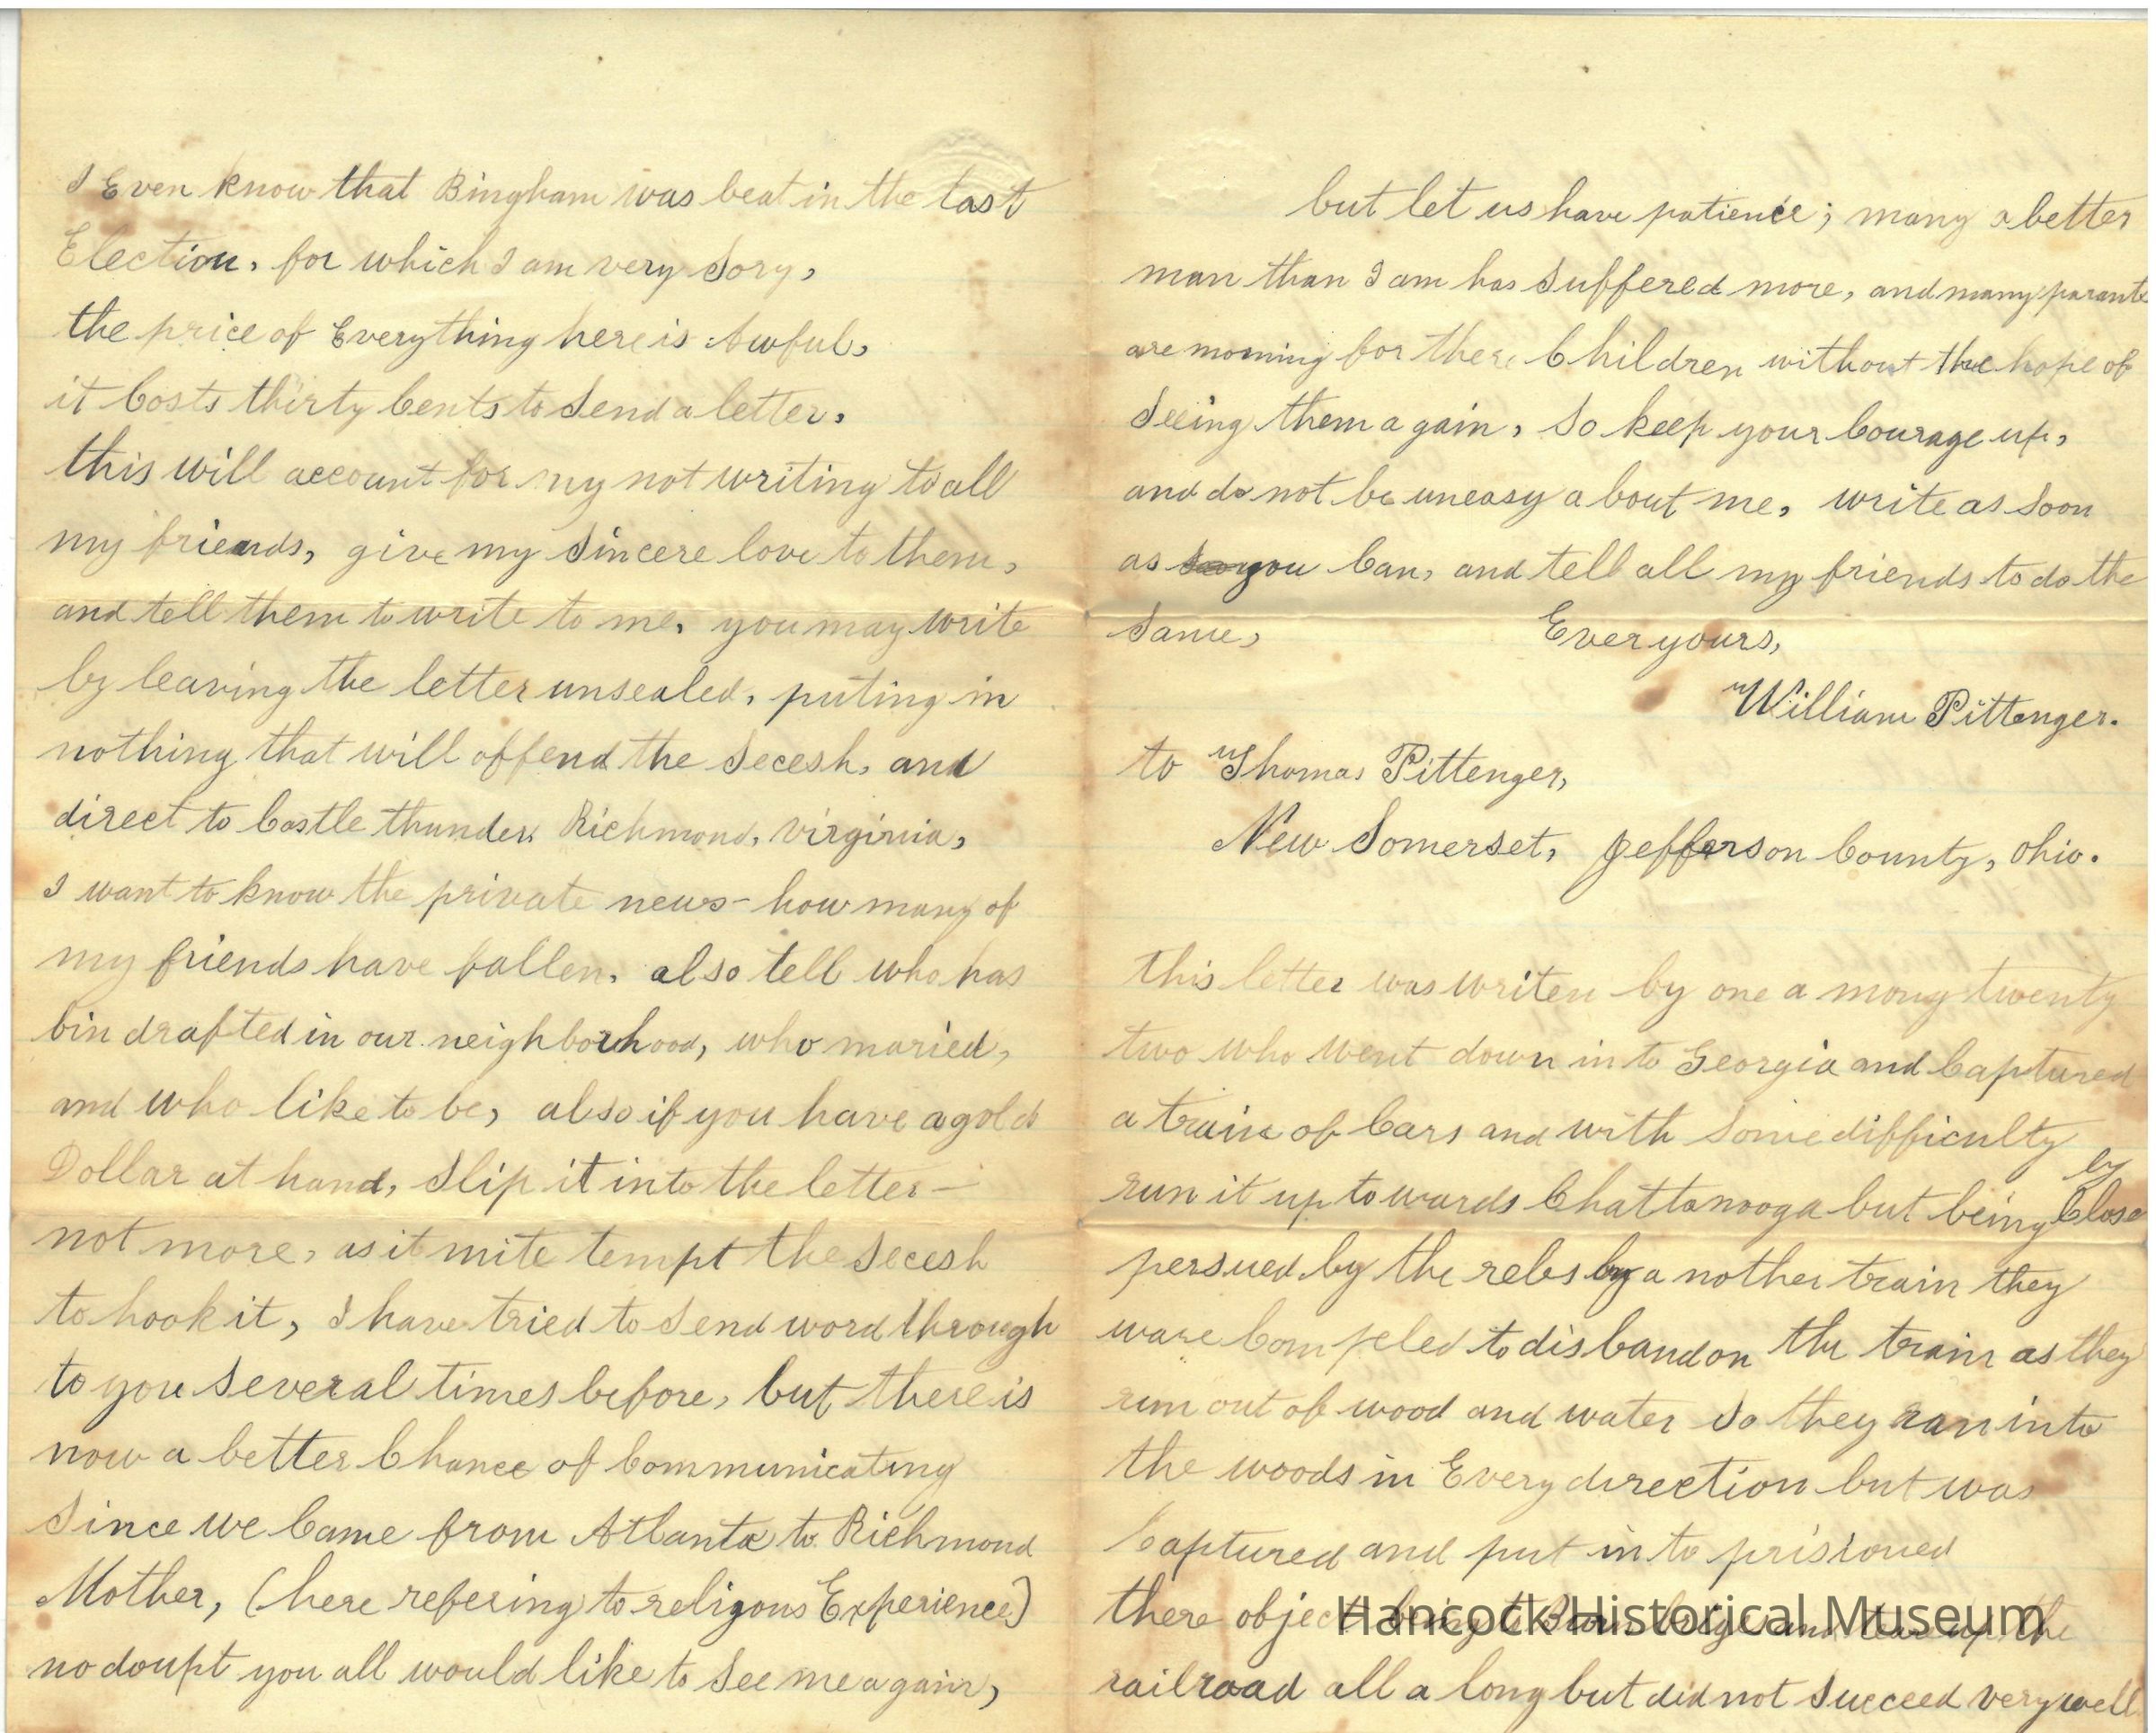 I Even know that Bingham was beat in the last
Election, for which I am very Sory,
the price of Everything here is Awful,
it Costs thirty Cents to Send a letter,
this will account for my not writing to all
my friends, give my Sincere love to them,
and tell them to write to me, you may write
by leaving the letter unsealed, puting in
nothing that will offend the Secesh, and
direct to Castle thunder, Richmond, virginia,
I want to know the private news - how many of
my friends have fallen, also tell who has
bin drafted in our neighborhood, who maried,
and who like to be, also if you have a gold
Dollar at hand, Slip it into the letter -
not more, as it mite tempt the Secesh
to hook it, I have tried to Send word through
to you Several times before, but there is
now a better Chance of Communicating
Since we Came from Atlanta to Richmond
Mother, (here refering to religous Experience)
no doupt you all would like to See me again,
but let us have patience; many a better
man than I am has Suffered more, and many parants
are morning for there Children without the hope of
Seeing them again, So keep your Courage up,
and do not be uneasy about me, write as Soon
as you Can, and tell all my friends to do the
Same, Ever yours,
William Pittenger.
to Thomas Pittenger,
New Somerset, Jefferson County, Ohio.
this letter was writen by one a mong twenty
two who went down in to Georgia and Captured
a train of Cars and with Some difficulty
run it up to wards Chattanooga but being Closely
persued by the rebs by a nother train they
ware Compeled to disbandon the train as they
run out of wood and water So they ran into
the woods in Every direction but was
Captured and put in to prisioned
there object being to Burn bridges and tear up the
railroad all a long but did not Succeed very well
Hancock Historical Museum